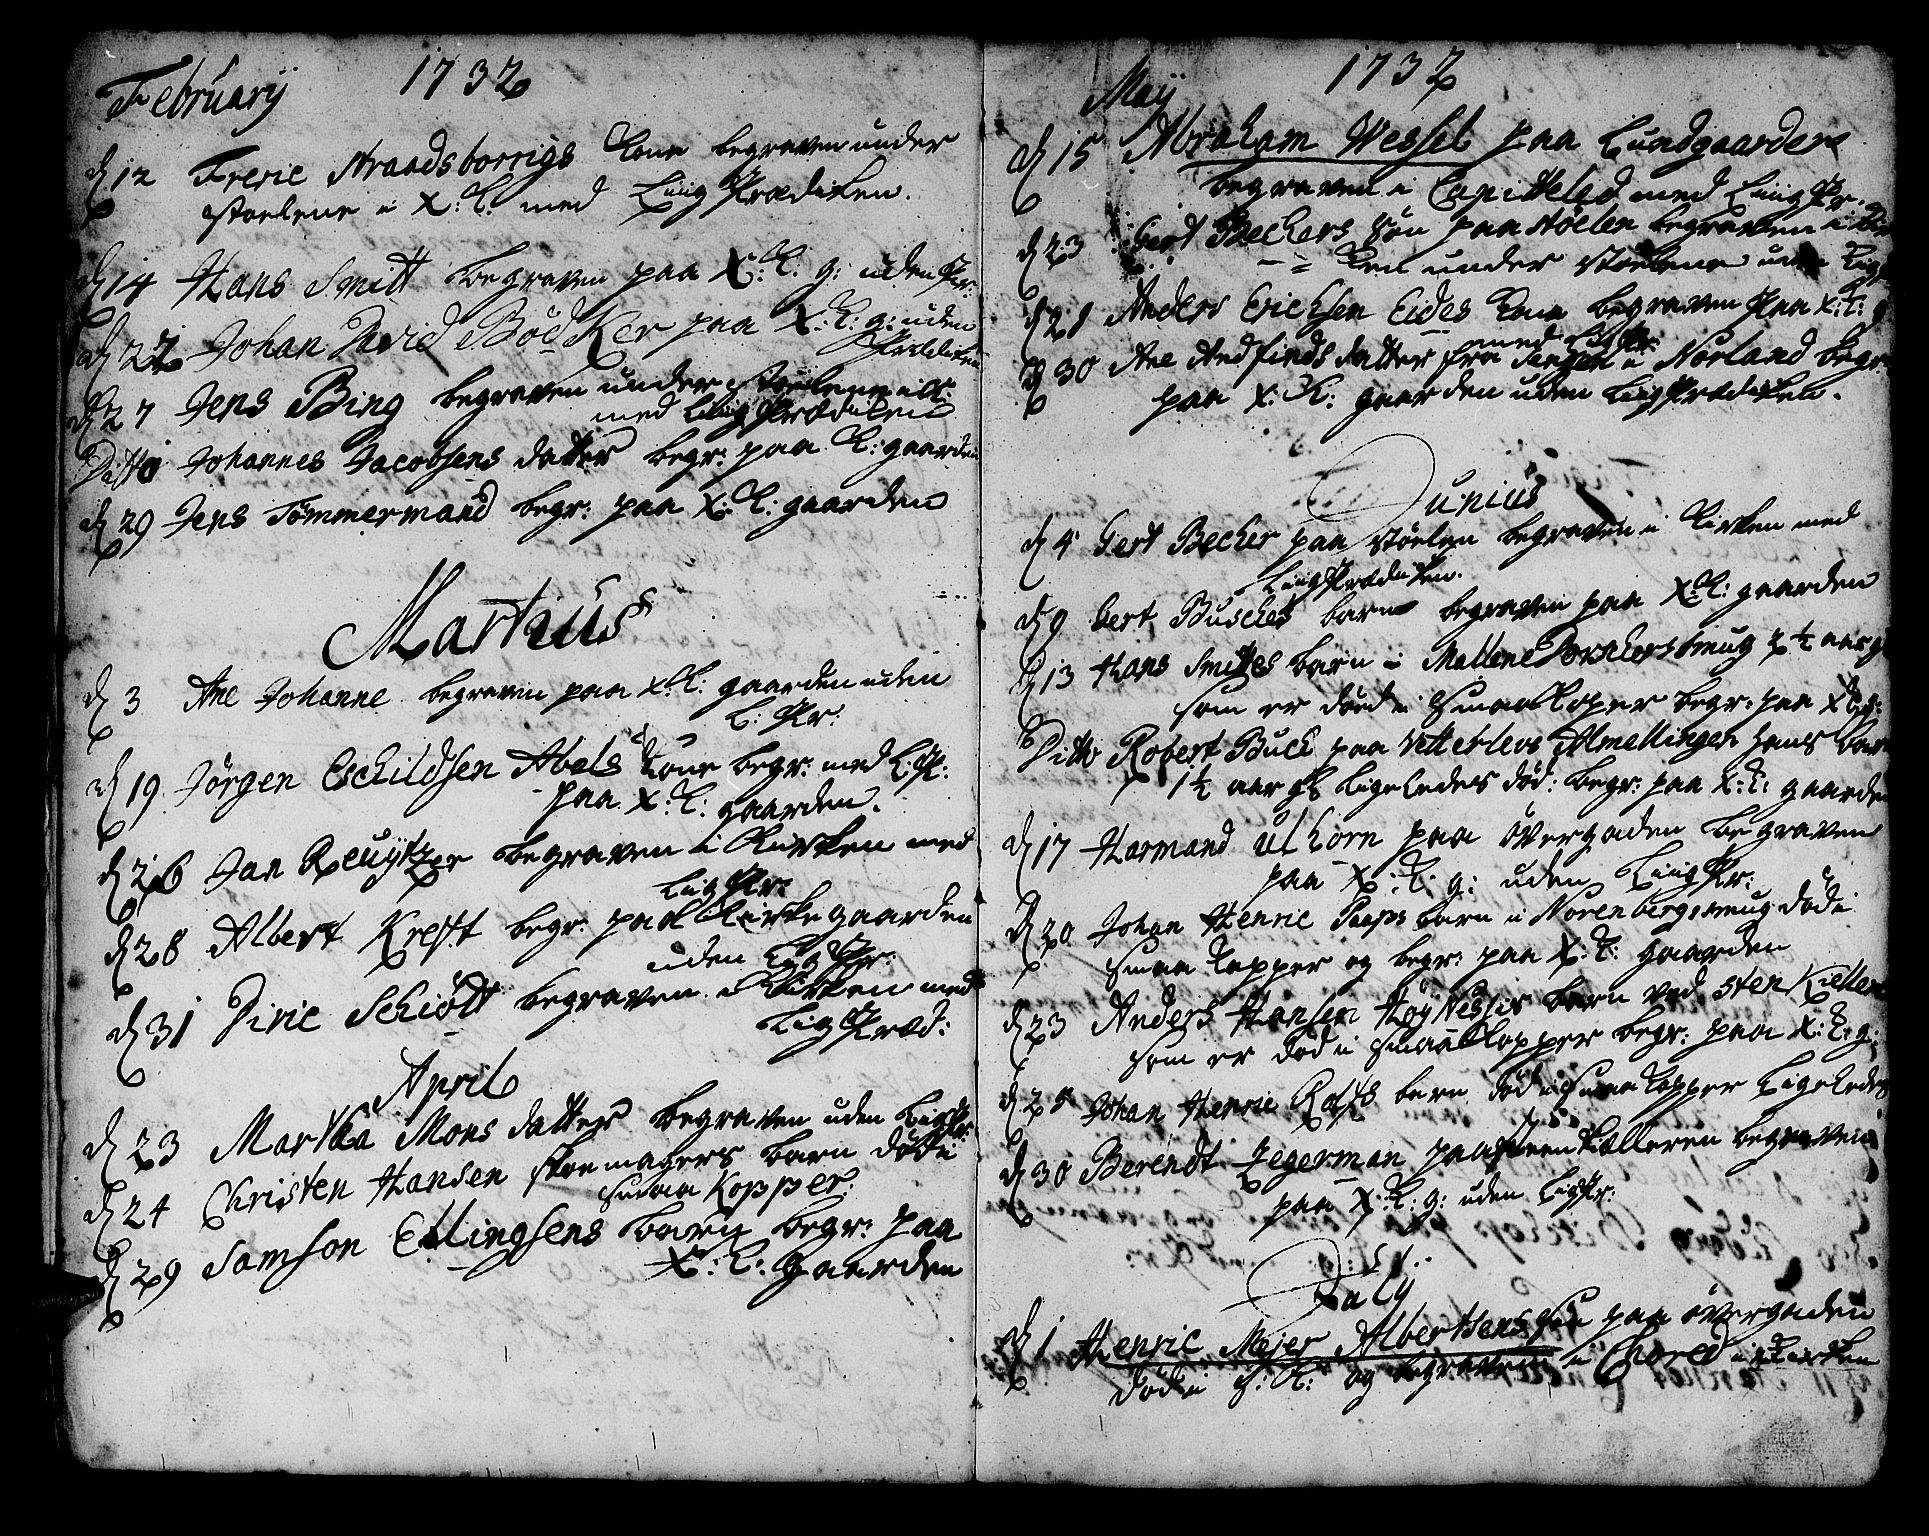 February 1732
d 12 Freric Strandsborrigs Kone begraven under
stoelene i X: K: med Liig Prædiken.
d 14 Hans Smitt begraven paa X: K: g: uden Pr:
d 22 Johan David Bödker paa X: K: g: uden
Prædiken
d 27 Jens Bing begraven under stoelene i K:
med Liig Prædiken
Ditto Johannes Jacobsens datter begr: paa K: gaarden
d 29 Jens Tømmermand begr: paa X: K: gaarden
Martius
d 3 Ane Johanne begraven paa X: K: gaarden uden
L: Pr:
d 19 Jörgen Eschildsen Abels Kone begr: med L: P:
paa X: K: gaarden.
d 26 Jan Reuytzer begraven i Kirken med
Liig Pr:
d 28 Albert Krefft begr: paa Kirkegaarden
uden Liig Pr:
d 31 Diric Schiödt begraven i Kirken med
Liig Præd:
April
d 23 Martha Mons datter begraven uden Liig Pr:
d 24 Christen Hansen skoemagers barn døde
smaa Kopper.
d 29 Samson Ellingsens barn begr: paa
X: K: gaarden
Maij 1732
d 15 Abraham Wessel paa Lundgaarden
begraven i Capitteled med Liig Pr:
d 23 Gert Bechers Søn paa Støelen begraven i
Ken under stoelene uden Liig
d 28 Anders Erichsen Eides Kone begraven paa X: K: g
med Liig Pr:
d 30 Ane Andfinds datter fra i Norland begr:
paa X: K: gaarden uden Liig Prædiken.
Junius
d 4 Gert Becher paa støelen begraven i Kirken med
Liig Prædiken.
d 9 Gert Busches barn begraven paa X: K: gaarden
d 13 Hans Smittes barn i Mallene smug 2½ aar gl
som er död i smaa Koper begr: paa X K g:
Ditto Robert Buck paa Vetterlevs Almettingen hans barn
1½ aar gl ligeledes död: begr: paa X: K: gaarden
d 17 Harmand Ulhorn paa övergaden begraven
paa X: K: g: uden Liig Pr:
d 20 Johan Henric Paaps barn i Norenbergsmug död i
smaa Kopper og begr: paa X: K: gaarden
d 23 Anders Hansen HøyNesses barn ved Sten Kielleren
som er död i smaa Kopper begr: paa X: K: g:
d 25 Johan Henric Rolfs bern död i smaa Kopper Ligeledes
d 30 Berendt Jegerman paa steen Kælleren begraven
paa X: K: g: uden Lig Pr:
July
d 1 Henric Meier Albertsens søn paa övergaden
død i S: K: og begraven i Chored i Kirken